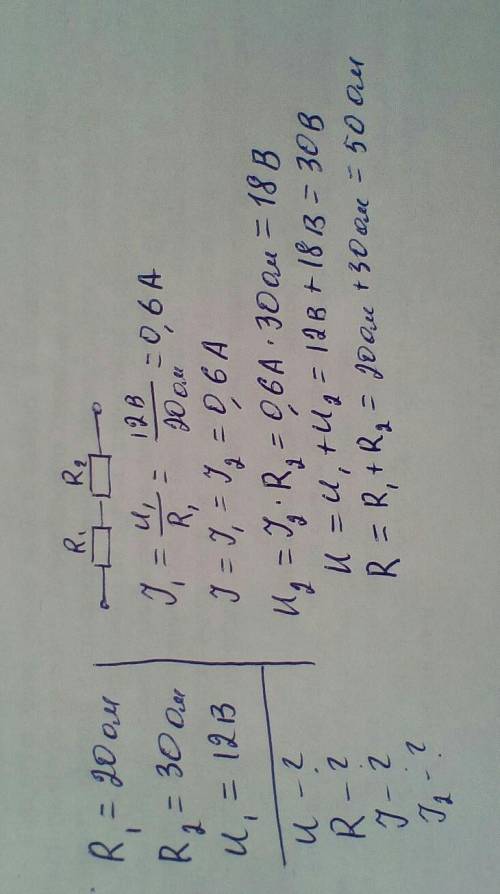 R₁ = 20 Ом
R₂ = 30 Ом
U₁ = 12 В
U – ?
R – ?
I – ?
I₂ – ?
R₁ R₂
I₁ = U₁/R₁ = 12В/20 Ом = 0,6 А
I = I₁ = I₂ = 0,6 А
U₂ = I₂ · R₂ = 0,6А · 30 Ом = 18 В
U = U₁ + U₂ = 12В + 18В = 30 В
R = R₁ + R₂ = 20 Ом + 30 Ом = 50 Ом